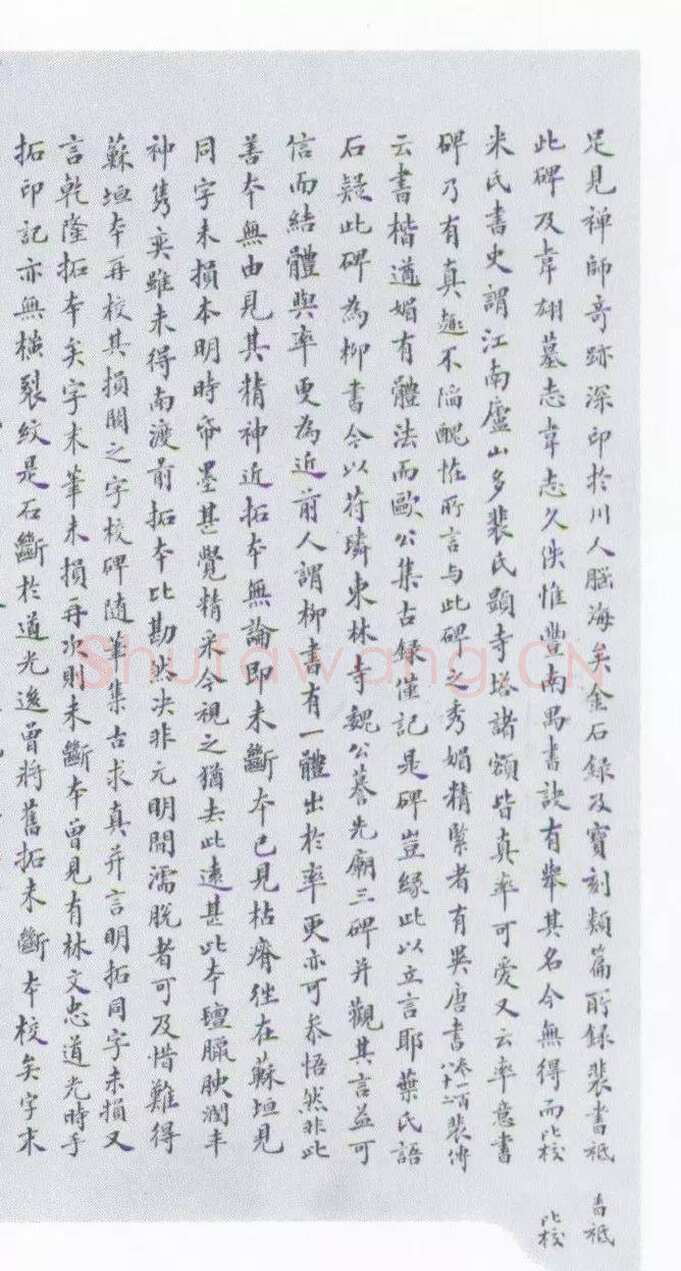 足見禅師奇跡深印於川人腦海矣金石録及寶刻類篇所録裴書祗
此碑及韋翃墓志韋志久佚惟豐南禺書訣有舉其名今無得而比校
米氏書史謂江南廬山多裴氏顯寺塔諸額皆真率可愛又云率意書
碑乃有真趣不陷醜怪所言与此碑之秀媚精緊者有異唐書卷一百八十二裴傳
云書楷遒媚有體法而歐公集古録僅記是碑豈緣此以立言耶葉氏語
石疑此碑為柳書今以苻璘東林寺魏公暮先廟三碑并觀其言益可
信而結體與率更為近前人謂柳書有一體出於率更亦可参悟然非此
善本無由見其精神近拓本無論即未斷本已見枯瘠往在蘇垣見
同字未損本明時帘墨甚覺精采今視之猶去此遠甚此本壇臘腴潤丰
神雋爽雖未得南渡前拓本比勘然决非元明間濡脱者可及惜難得
蘇垣本再校其損闕之字校碑随筆集古求真并言明拓同字未損又
言乾隆拓本矣字末筆未損再次則未斷本曾見有林文忠道光時手
拓印記亦無橫裂紋是石斷於道光後曾將舊拓未斷本校矣字末
書祗
比校
Shufawang.CN